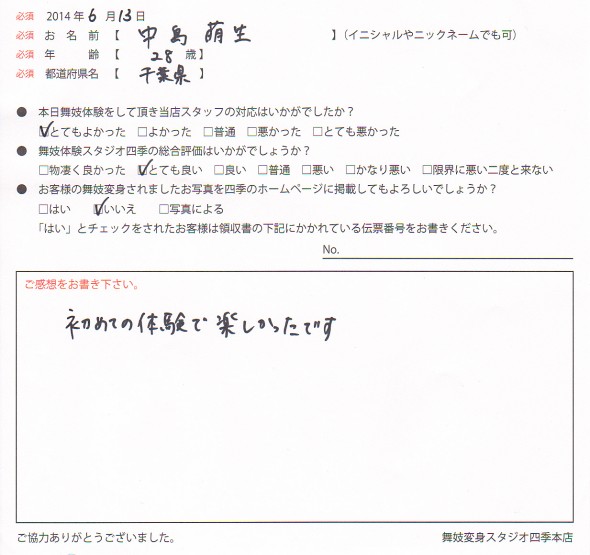 必須 2014年6月13日
必須 お名前【 中島 萌生 】(イニシャルやニックネームでも可)
必須 年齢【 28 歳】
必須 都道府県名【 千葉県】
● 本日舞妓体験をして頂き当店スタッフの対応はいかがでしたか？
☑とてもよかった □よかった □普通 □悪かった □とても悪かった
● 舞妓体験スタジオ四季の総合評価はいかがでしょうか？
□物凄く良かった ☑とても良い □良い □普通 □悪い □かなり悪い □限界に悪い二度と来ない
● お客様の舞妓変身されましたお写真を四季のホームページに掲載してもよろしいでしょうか？
□はい ☑いいえ □写真による
「はい」とチェックをされたお客様は領収書の下記にかかれている伝票番号をお書きください。
No.
ご感想をお書き下さい。
初めての体験で楽しかったです
ご協力ありがとうございました。 舞妓変身スタジオ四季本店